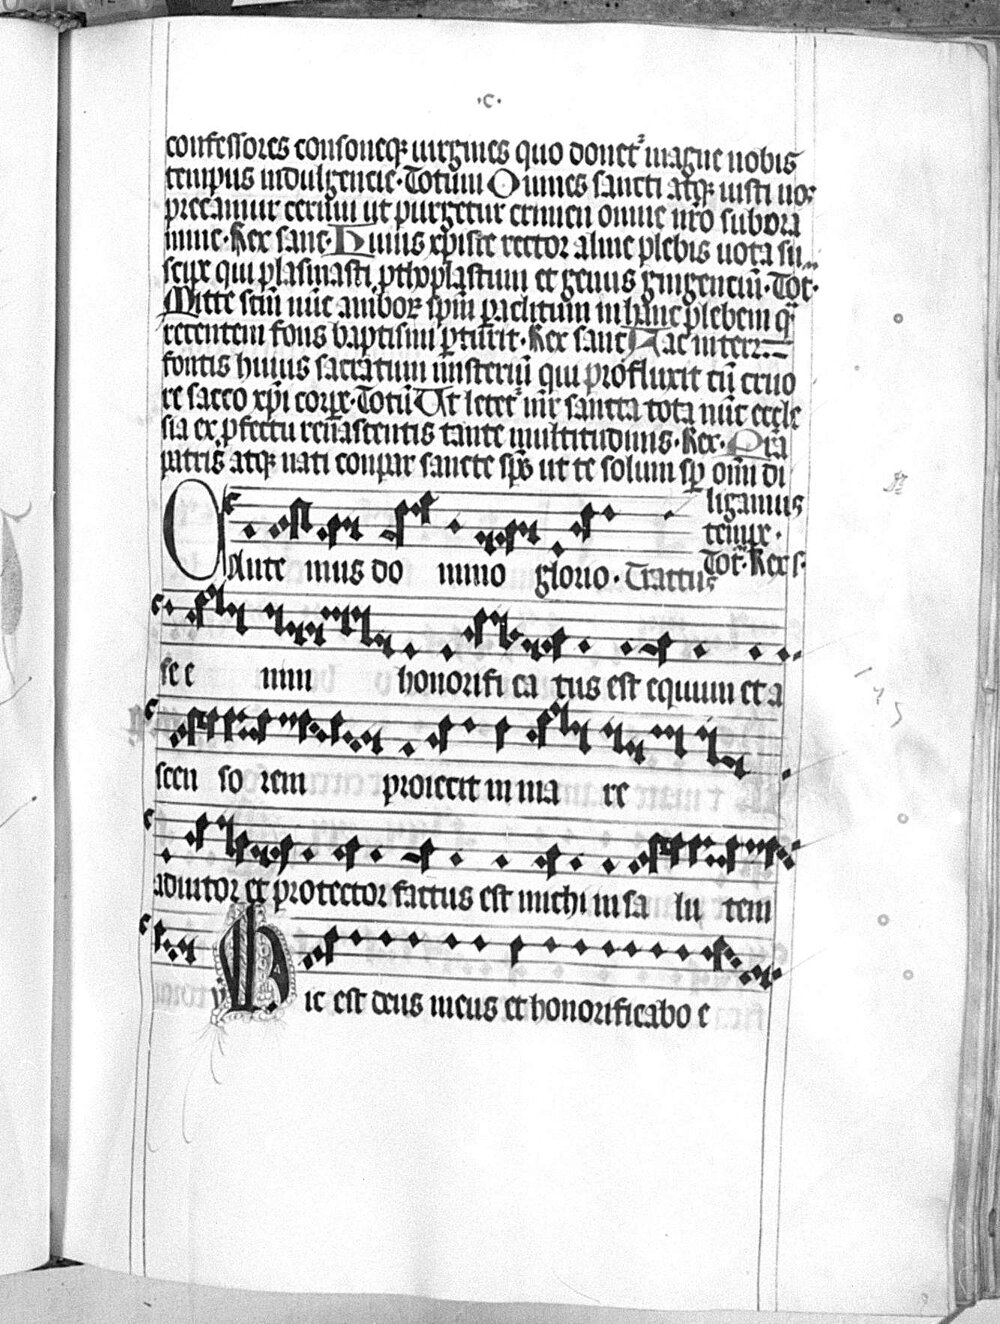 ·c·
confessores consoneqꝫ uirgines quo donet᷑ magne nobis
tempus indulgencie· Totum Omnes sancti atqꝫ iusti uos
precamur cernui ut purgetur crimen omne nr̄o sub ora
mine· Rex sanc· Huius xp̄iste rector alme plebis uota su
scipe qui plasmasti ꝓthoplastum et genus gingenciū· Tot·
Mitte sc̄m nūc amborꝫ sp̄m paclitum in hanc plebem q̄
recentem fons baptismi ꝑturit· Rex sanc Fac interr
fontis huius sacratum misteriū qui profluxit cū cruo
re sacro xp̄i corpꝫ· Totū Ut letet᷑ mr̄ sancta tota nūc eccle
sia ex ꝓfectu renascentis tante multitudinis· Rex· Pr̄ia
patris atqꝫ nati conpar sancte sp̄s ut te solum sp̄ om̄i di
ligamus
tempꝫ·
Tot᷑· Rex s·
Cante mus do mino glorio· Tractus
se e nim honorifi ca tus est equum et a
scen so rem proiecit in ma re
adiutor et protector factus est michi in sa lu tem
v Hic est deus meus et honorificabo e